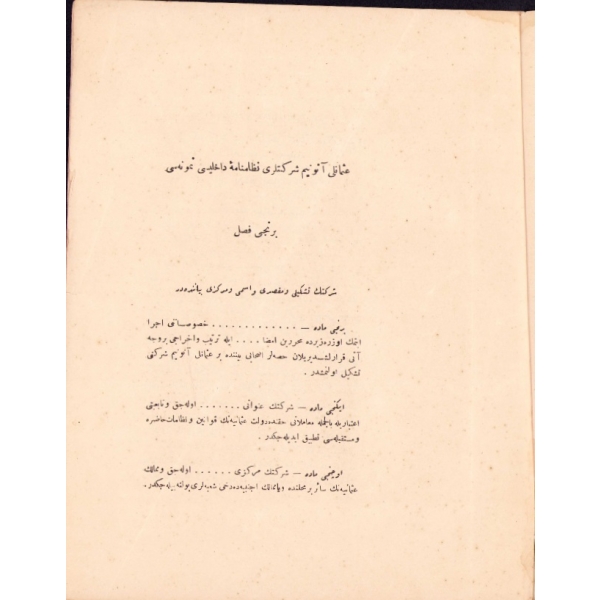 عثمانلی آنونیم شرکتلری نظامنامهٔ داخلیسی نمونه‌سی
برنجی فصل
شرکتك تشکیلی ومقصدی واسمی ومرکزی بیاننده‌در
برنجی ماده — . . . . . . . . . . . . خصوصاتی اجرا
ایتمك اوزره زیرده محررین امضا . . . . ایله ترتیب واخراجی بروجه
آتی قرارلشدیریلان حصه‌لر اصحابی بیننده بر عثمانلی آنونیم شرکتی
تشکیل اولنمشدر .
ایکنجی ماده — شرکتك عنوانی . . . . . . . اوله‌جق وتابعیتی
اعتباریله بالجمله معاملاتی حقنده دولت عثمانیه‌نك قوانین ونظامات حاضره
ومستقبله‌سی تطبیق ایدیله‌جکدر .
اوچنجی ماده — شرکتك مرکزی . . . . . . اوله‌جق وممالك
عثمانیه‌نك سائر بر محلنده ویا ممالك اجنبیه‌ده دخی شعبه‌لری بولنه‌بیله‌جکدر .